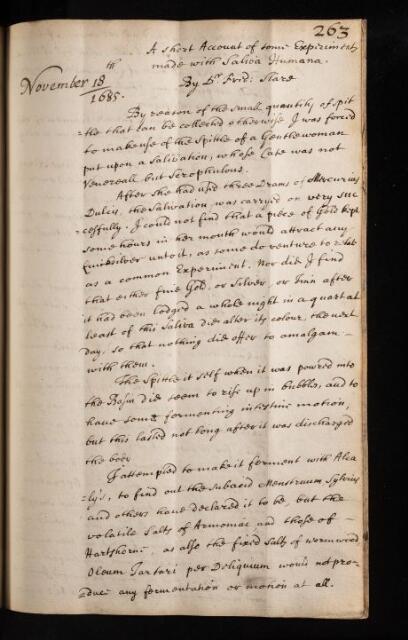 263
A short Account of some Experiments
made with Saliva Humana.
November 18th
1685.
By Dr Frid: Slare
By reason of the small quantity of spit
=tle that can be collected otherwise I was forced
to make use of the Spittle of a Gentlewoman
put upon a Salivation, whose Case was not
Venereall but Scrophulous.
After she had used three Drams of Mercurius
Dulcis, the Salivation was carryed on very suc
=cessfully. I could not find that a piece of Gold kept
some hours in her mouth would attract any
Quicksilver unto it, as some do venture to
as a common Experiment. Nor did I find
that either fine Gold, or Silver, or Tinn after
it had been lodged a whole night in a quart at
least of this Saliva did alter its colour, the next
day, so that nothing did offer to amalgam-
with them.
The Spittle it self when it was powred into
the Bason did seem to rise up in bubbls, and to
have some fermenting intestine motion,
but this lasted not long after it was discharged
the body
I attempted to make it ferment with Alca
=ly's, to find out the subacid Menstruum Sylvius
and others have declared it to be, but the
volatile Salts of Armoniac and those of -
Hartshorne, as also the fixed Salts of wormwood
Oleum Tartari per Deliquium would not pro-
=duce any fermentation or motion at all.